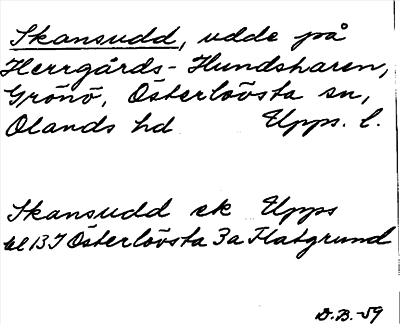 Skansudd, udde på
Herrgårds-Hundsharen,
Grönö, Österlövsta sn,
Olands hd Upps. l.
Skansudd ek Upps
bl 13 I Österlövsta 3a Flatgrund
D.B.-59